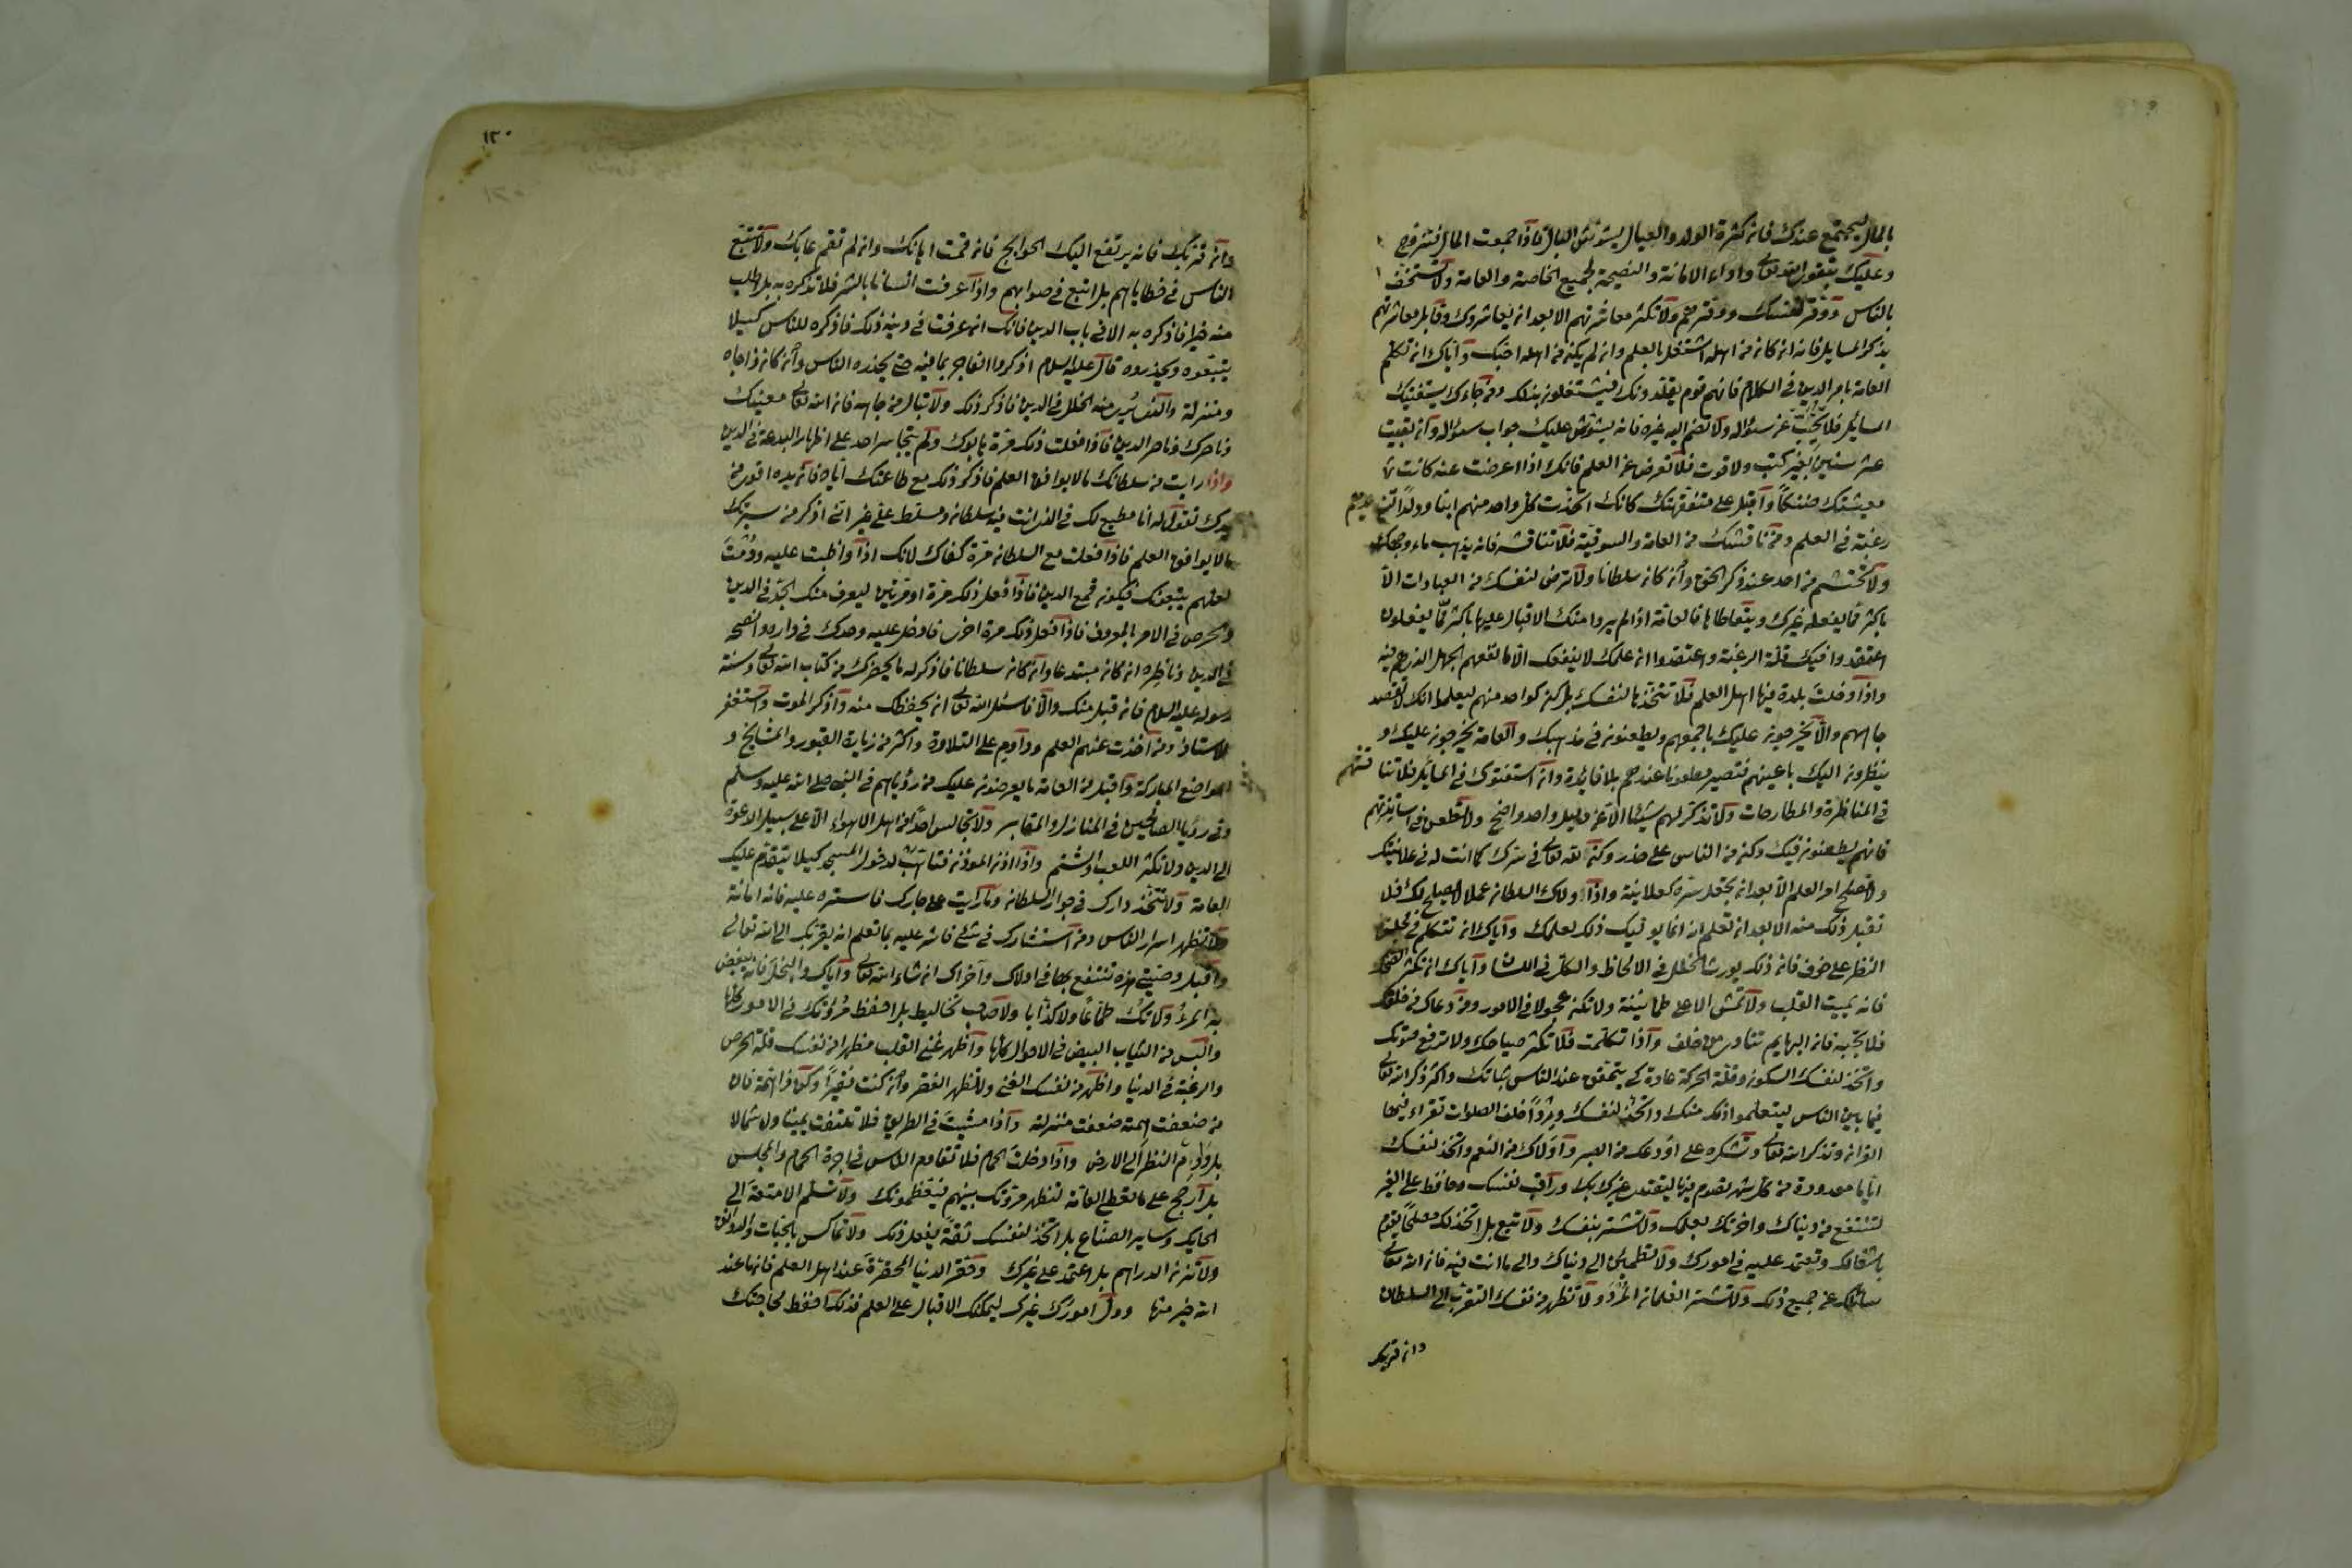 بالمال ليجتمع عندك فان كثرة الولد والعيال يشوش البال فاذا جمعت المال فتزوج
وعليك بتقوى الله تعالى واداء الامانة والنصيحة لجميع الخاصة والعامة ولا تستخف
بالناس ووقر نفسك ووقرهم ولا تكثر معاشرتهم الا بعد ان يعاشروك وقابل معاشرتهم
بذكر المسايل فانه ان كان من اهله اشتغل بالعلم وان لم يكن من اهله احبك واياك ان تكلم
العامة بامر الدين في الكلام فانهم قوم يقلدونك فيشتغلون بذلك ومن جاءك يستفتيك
المسائل فلا تجب الا عن سؤاله ولا تضم اليه غيره فانه يشوش عليك جواب سؤاله وان بقيت
عشر سنين بغير كسب ولا قوت فلا تعرض عن العلم فانك اذا اعرضت عنه كانت
معيشتك ضنكا واقبل على متفقهتك كانك اتخذت كل واحد منهم ابنا وولدا لتزيدهم
رغبة في العلم ومن ناقشك من العامة والسوقية فلا تناقشه فانه يذهب ماء وجهك
ولا تحتشم من احد عند ذكر الحق وان كان سلطانا ولا ترض لنفسك من العبادات الا
باكثر مما يفعله غيرك ويتعاطاها فالعامة اذا لم يروا منك الاقبال عليها باكثر مما يفعلون
اعتقدوا فيك قلة الرغبة واعتقدوا ان علمك لا ينفعك الا ما نفعهم الجهل الذي هم فيه
واذا دخلت بلدة فيها اهل العلم فلا تتخذها لنفسك بل كن كواحد منهم ليعلموا انك لا تقصد
جاههم والا يخرجون عليك باجمعهم ويطعنون في مذهبك والعامة يخرجون عليك و
ينظرون اليك باعينهم فتصير مطعونا عندهم بلا فائدة وان استفتوك في المسائل فلا تناقشهم
في المناظرة والمطارحات ولا تذكر لهم شيئا الا عن دليل واضح ولا تطعن في اساتذتهم
فانهم يطعنون فيك وكن من الناس على حذر وكن لله تعالى في سرك كما انت له في علانيتك
ولا تصلح امر العلم الا بعد ان تجعل سره كعلانيته واذا ولاك السلطان عملا لا يصلح لك فلا
تقبل ذلك منه الا بعد ان تعلم انه انما يوليك ذلك لعلمك واياك ان تتكلم في مجلس
النظر على خوف فان ذلك يورث الخلل في الالفاظ والكل في اللسان واياك ان تكثر الضحك
فانه يميت القلب ولا تمش الا على طمانينة ولا تكن عجولا في الامور ومن دعاك من خلفك
فلا تجبه فان البهايم تنادى من خلف واذا تكلمت فلا تكثر صياحك ولا ترفع صوتك
واتخذ لنفسك السكون وقلة الحركة عادة كي يتحقق عند الناس ثباتك واكثر ذكر الله تعالى
فيما بين الناس ليتعلموا ذلك منك واتخذ لنفسك وردا خلف الصلوات تقراء فيها
القران وتذكر الله تعالى وتشكره على ما اودعك من الصبر واولاك من النعم واتخذ لنفسك
اياما معدودة من كل شهر تصوم فيها ليقتدى غيرك بك وراقب نفسك وحافظ على الغير
لتنتفع من دنياك واخرتك بعلمك ولا تشتر بنفسك ولا تبع بل اتخذ لك مصلحا يقوم
باشغالك وتعتمد عليه في امورك ولا تطمئن الى دنياك والى ما انت فيه فان الله تعالى
سائلك عن جميع ذلك ولا تشتر الغلمان المرد ولا تظهر من نفسك التقرب الى السلطان
وان قربك
١٣٠
وان قربك فانه يرتفع اليك الحوايج فان قمت اهانك وان لم تقم عابك ولا تتبع
الناس في خطاياهم بل اتبع في صوابهم واذا عرفت انسانا بالشر فلا تذكره به بل اطلب
منه خيرا فاذكره به الا في باب الدين فانك ان عرفت في دينه ذلك فاذكره للناس كيلا
يتبعوه ويحذروه قال عليه السلام اذكروا الفاجر بما فيه حتى يحذره الناس وان كان ذا جاه
ومنزلة والذي يرى منه الخلل في الدين فاذكر ذلك ولا تبال من جاهه فان الله تعالى معينك
وناصرك وناصر الدين فاذا فعلت ذلك مرة هابوك ولم يتجاسر احد على اظهار البدعة في الدين
واذا رايت من سلطانك ما لا يوافق العلم فاذكر ذلك مع طاعتك اياه فان يده اقوى من
يدك تقول له انا مطيع لك في الذي انت فيه سلطان ومسلط على غير اني اذكر من سيرتك
ما لا يوافق العلم فاذا فعلت مع السلطان مرة كفاك لانك اذا واظبت عليه ودمت
لعلهم يتبعونك فيكون قمع الدين فاذا فعل ذلك مرة او مرتين ليعرف منك الجد في الدين
والحرص في الامر بالمعروف فاذا فعل ذلك مرة اخرى فادخل عليه وحدك في داره وانصحه
في الدين وناظره ان كان مبتدعا وان كان سلطانا فاذكر له ما يحضرك من كتاب الله تعالى وسنة
رسوله عليه السلام فان قبل منك والا فاسئل الله تعالى ان يحفظك منه واذكر الموت واستغفر
للاستاذ ومن اخذت عنهم العلم وداوم على التلاوة واكثر من زيارة القبور والمشايخ و
المواضع المباركة واقبل من العامة ما يعرضون عليك من رؤياهم في النبي صلى الله عليه وسلم
وفي رؤيا الصالحين في المنازل والمقابر ولا تجالس احدا من اهل الاهواء الا على سبيل الدعوة
الى الدين ولا تكثر اللعب والشتم واذا اذن المؤذن فتاهب لدخول المسجد كيلا يتقدم عليك
العامة ولا تتخذ دارك في جوار السلطان وما رايت على جارك فاستره عليه فانه امانة
ولا تظهر اسرار الناس ومن استشارك في شئ فاشر عليه بما تعلم انه يقربك الى الله تعالى
واقبل وصيتي هذه تنتفع بها في اولاك واخراك ان شاء الله تعالى واياك والبخل فانه يبغض
به المرء ولا تك طماعا ولا كذابا ولا صاحب تخاليط بل احفظ مروتك في الامور كلها
والبس من الثياب البيض في الاحوال كلها واظهر غنى القلب مظهرا من نفسك قلة الحرص
والرغبة في الدنيا واظهر من نفسك الغنى ولا تظهر الفقر وان كنت فقيرا وكن ذا همة فان
من ضعفت همته ضعفت منزلته واذا مشيت في الطريق فلا تلتفت يمينا ولا شمالا
بل داوم النظر الى الارض واذا دخلت الحمام فلا تقاوم الناس في اجرة الحمام والمجلس
بل ارجح على ما تعطى العامة لتظهر مروتك بينهم فيعظمونك ولا تسلم الامتعة الى
الحايك وساير الصناع بل اتخذ لنفسك ثقة يفعل ذلك ولا تماكس بالحبات والدوانق
ولا تزن الدراهم بل اعتمد على غيرك وحقر الدنيا المحقرة عند اهل العلم فان ما عند
الله خير منها وول امورك غيرك ليمكنك الاقبال على العلم فذلك احفظ لحاجتك